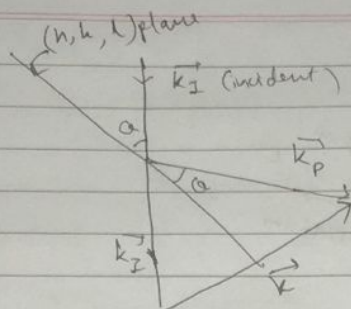 (h, k, l) plane
k_I (incident)
θ
k_P
θ
k_I
K